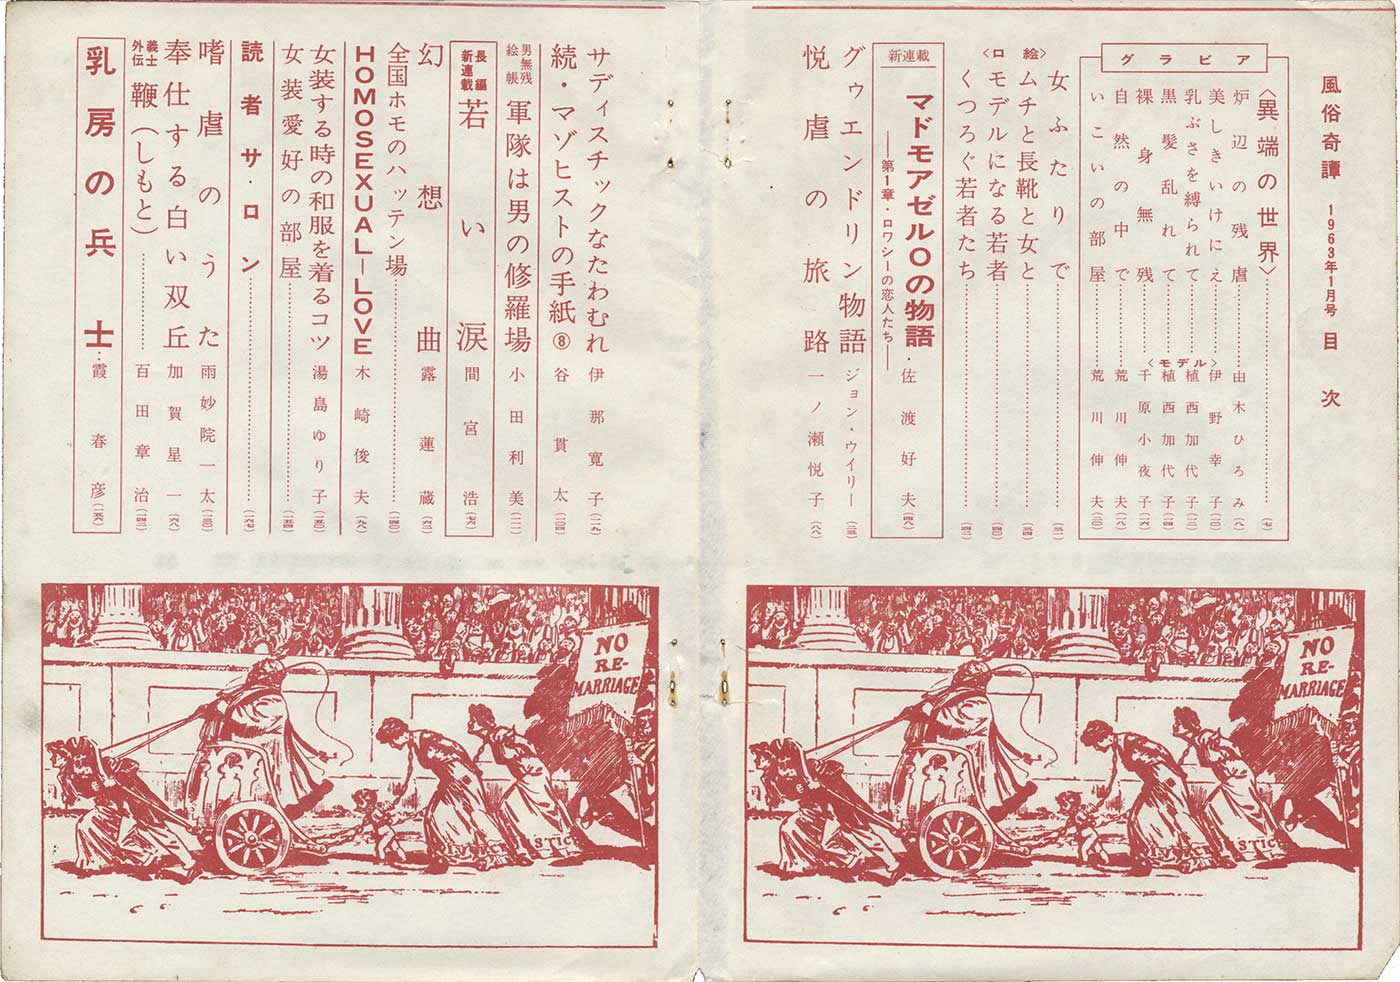 風俗奇譚 1963年1月号 目次
グラビア
〈異端の世界〉…(七)
炉辺の残虐…由木ひろみ(八)
美しきいけにえ…伊野幸子(一〇)
乳ぶさを縛られて…植西加代子(一二)
黒髪乱れて…植西加代子(一四)
裸身無残…千原小夜子(一六)
自然の中で…荒川伸夫(一八)
いこいの部屋…荒川伸夫(二〇)
〈モデル〉
女ふたりで…(三一)
〈口絵〉
ムチと長靴と女と…(三四)
モデルになる若者…(四〇)
くつろぐ若者たち…(四二)
新連載
マドモアゼルOの物語・佐渡好夫(四八)
―第1章・ロワシーの恋人たち―
グゥエンドリン物語 ジョン・ウイリー(二三)
悦虐の旅路 一ノ瀬悦子(八八)
サディスチックなたわむれ 伊那寛子(二一九)
続・マゾヒストの手紙⑧ 谷貫太(二〇四)
男無残絵帳 軍隊は男の修羅場 小田利美(一一一)
長編新連載 若い涙 間宮浩(七六)
幻想曲 露蓮蔵(六二)
全国ホモのハッテン場…(一四〇)
HOMOSEXUAL―LOVE 木崎俊夫(九八)
女装する時の和服を着るコツ 湯島ゆり子(一五〇)
女装愛好の部屋…(一五四)
読者サ・ロン…(一六七)
嗜虐のうた 雨妙院一太(一三〇)
奉仕する白い双丘 加賀星一(一六八)
義士外伝 鞭(しもと)…百田章治(一四二)
乳房の兵士…霞春彦(一五六)
NO
RE-
MARRIAGE
STIC
NO
RE-
MARRIAGE
STIC